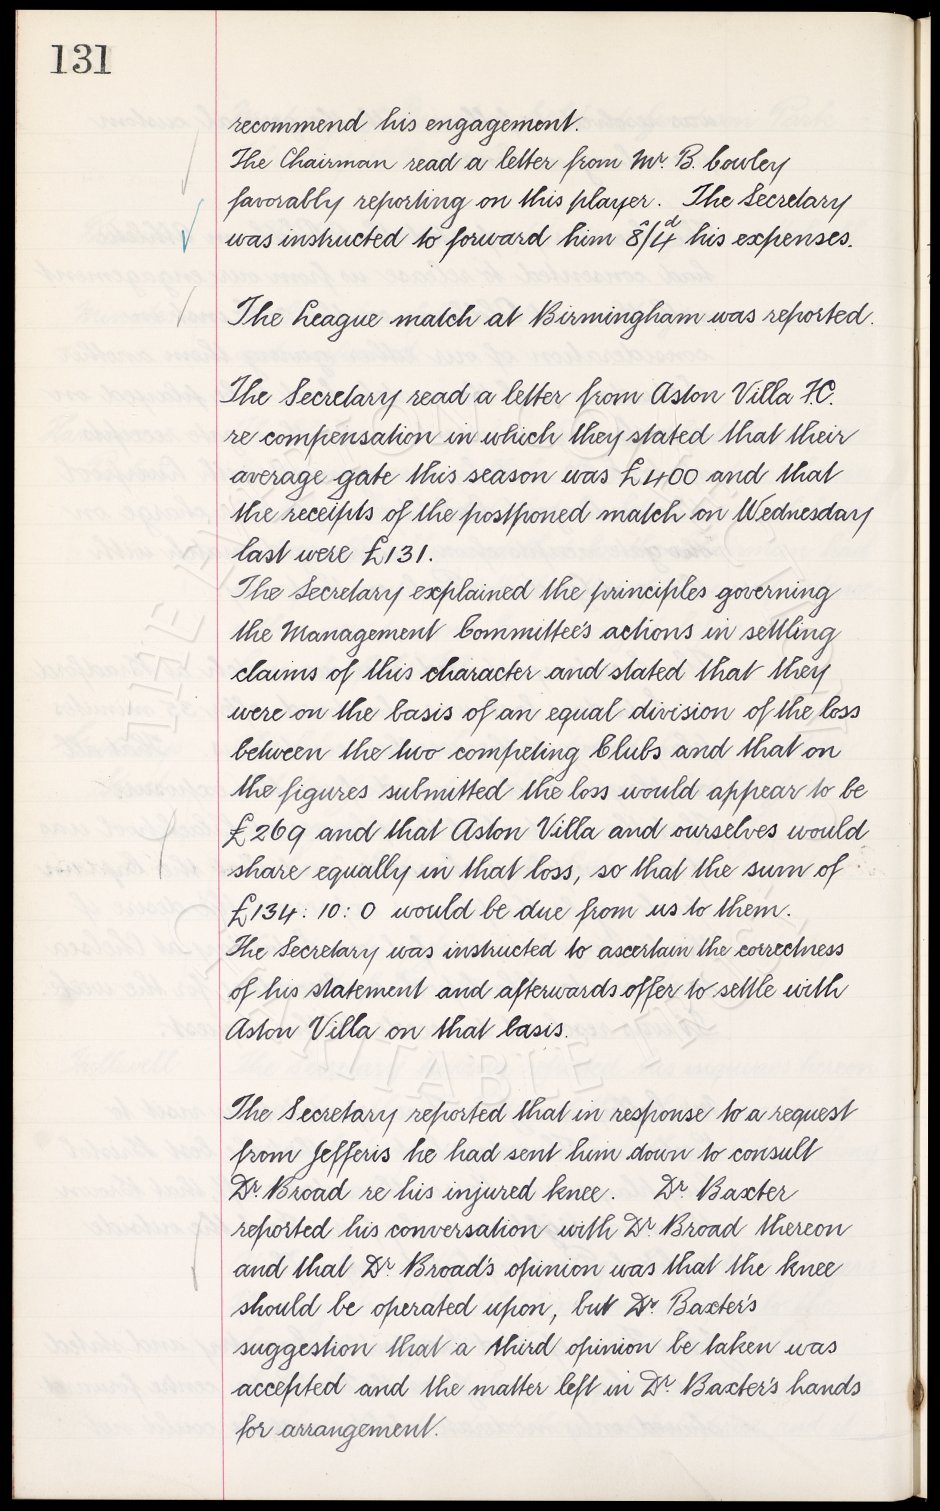 131
recommend his engagement.
The Chairman read a letter from Mr. B. Cowley
favorably reporting on this player. The Secretary
was instructed to forward him 8/4d his expenses.
The League match at Birmingham was reported.
The Secretary read a letter from Aston Villa F.C.
re compensation in which they stated that their
average gate this season was £400 and that
the receipts of the postponed match on Wednesday
last were £131.
The Secretary explained the principles governing
the Management Committee's actions in settling
claims of this character and stated that they
were on the basis of an equal division of the loss
between the two competing Clubs and that on
the figures submitted the loss would appear to be
£269 and that Aston Villa and ourselves would
share equally in that loss, so that the sum of
£134:10:0 would be due from us to them.
The Secretary was instructed to ascertain the correctness
of his statement and afterwards offer to settle with
Aston Villa on that basis.
The Secretary reported that in response to a request
from Jefferis he had sent him down to consult
Dr. Broad re his injured knee. Dr. Baxter
reported his conversation with Dr. Broad thereon
and that Dr. Broad's opinion was that the knee
should be operated upon, but Dr. Baxter's
suggestion that a third opinion be taken was
accepted and the matter left in Dr. Baxter's hands
for arrangement.